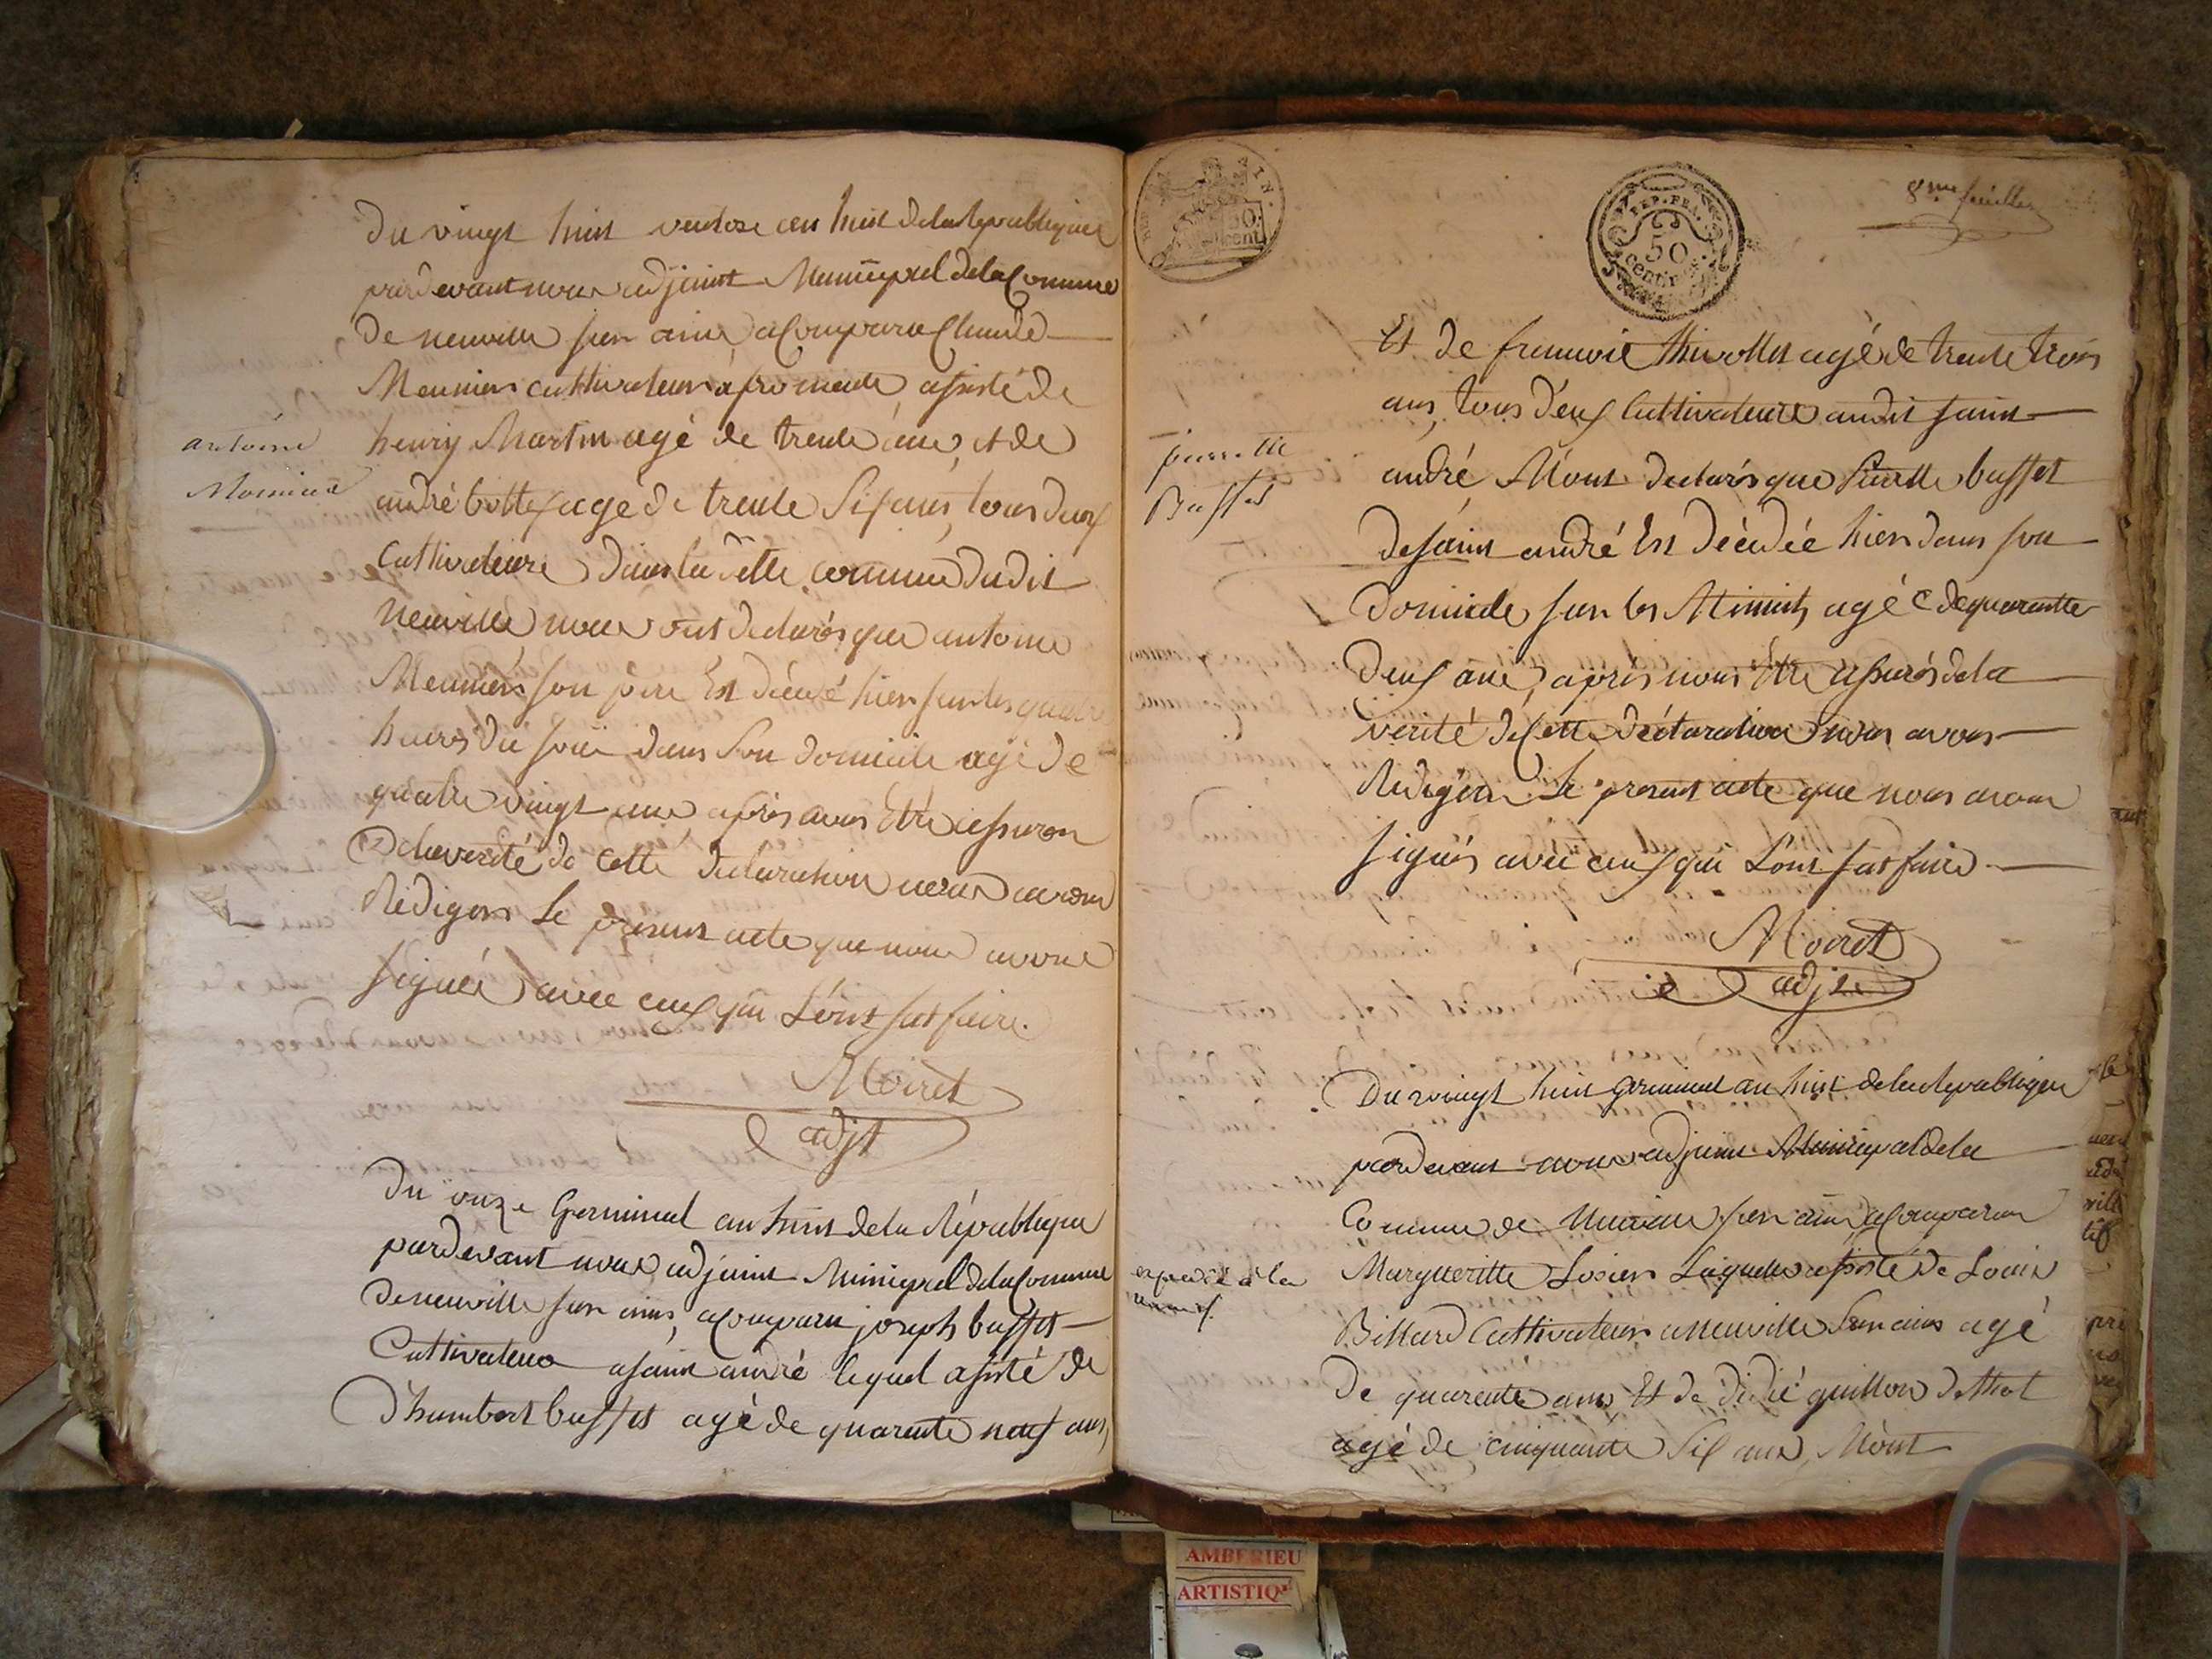 Du vingt huit ventose an huit de la republique
pardevant nous adjoint Municipal de la Commune
de neuville sur ain a Comparu Claude
Meunier cultivateur a fromente assisté de
antoine
Meunier
henry Martin agé de trente ans et de
andré bottex agé de trente six ans, tous deux
Cultivateurs dans la ditte commune dudit
Neuville nous ont declarés que antoine
Meunier son pere Est décédé hier sur les quatre
heures du soir dans son domicile agé de
quatre vingt ans, après avoir Etre assuron
de la verité de cette declaration nous avons
Rédigers Le present acte que nous avons
signés avec ceux qui L'ont sut faire.
Moiret
adjt
Du onze Germinal an huit de la République
pardevant nous adjoint Municipal de la Commune
de neuville sur ains, a Comparu joseph buffet
Cultivateur a saint andré lequel assisté de
D'humbert buffet agé de quarente neuf ans,
REP. FRA.
50
centimes
8me feuillet
Et de francois thivollet agé de trente trois
ans, tous deux Cultivateurs audit saint
pierrette
Buffet
andré M'ont declarés que Pierette buffet
de saint andré Est décédée hier dans son
Domicile sur les Minuit, agée de quarentte
deux ans, après nous Etre assurés de la
verité de Cette declaration nous avons
Redigers Le present acte que nous avons
signés avec ceux qui L'ont sut faire
Moiret
adjt
Du vingt huit germinal an huit de la republique
pardevant nous adjoint Municipal de la
Commune de Neuville sur ain a Comparu
Margueritte Losier Laquelle assisté de Louis
Billard Cultivateur a neuville sur ains agé
De quarente ans Et de Didié guillon de thol
agé de cinquante six ans, M'ont
AMBERIEU
ARTISTIQ